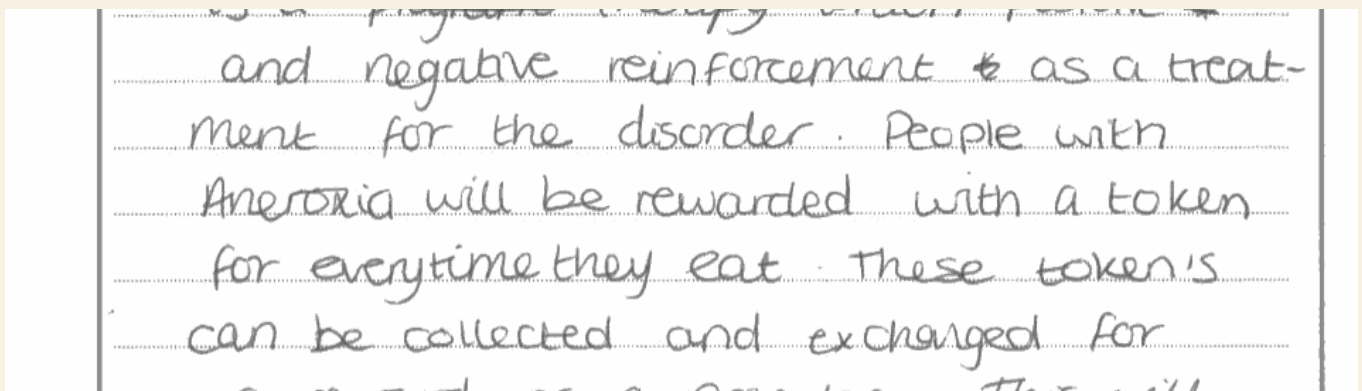 and negative reinforcement as a treat-
ment for the disorder. People with
Aneroxia will be rewarded with a token
for everytime they eat. These token's
can be collected and exchanged for